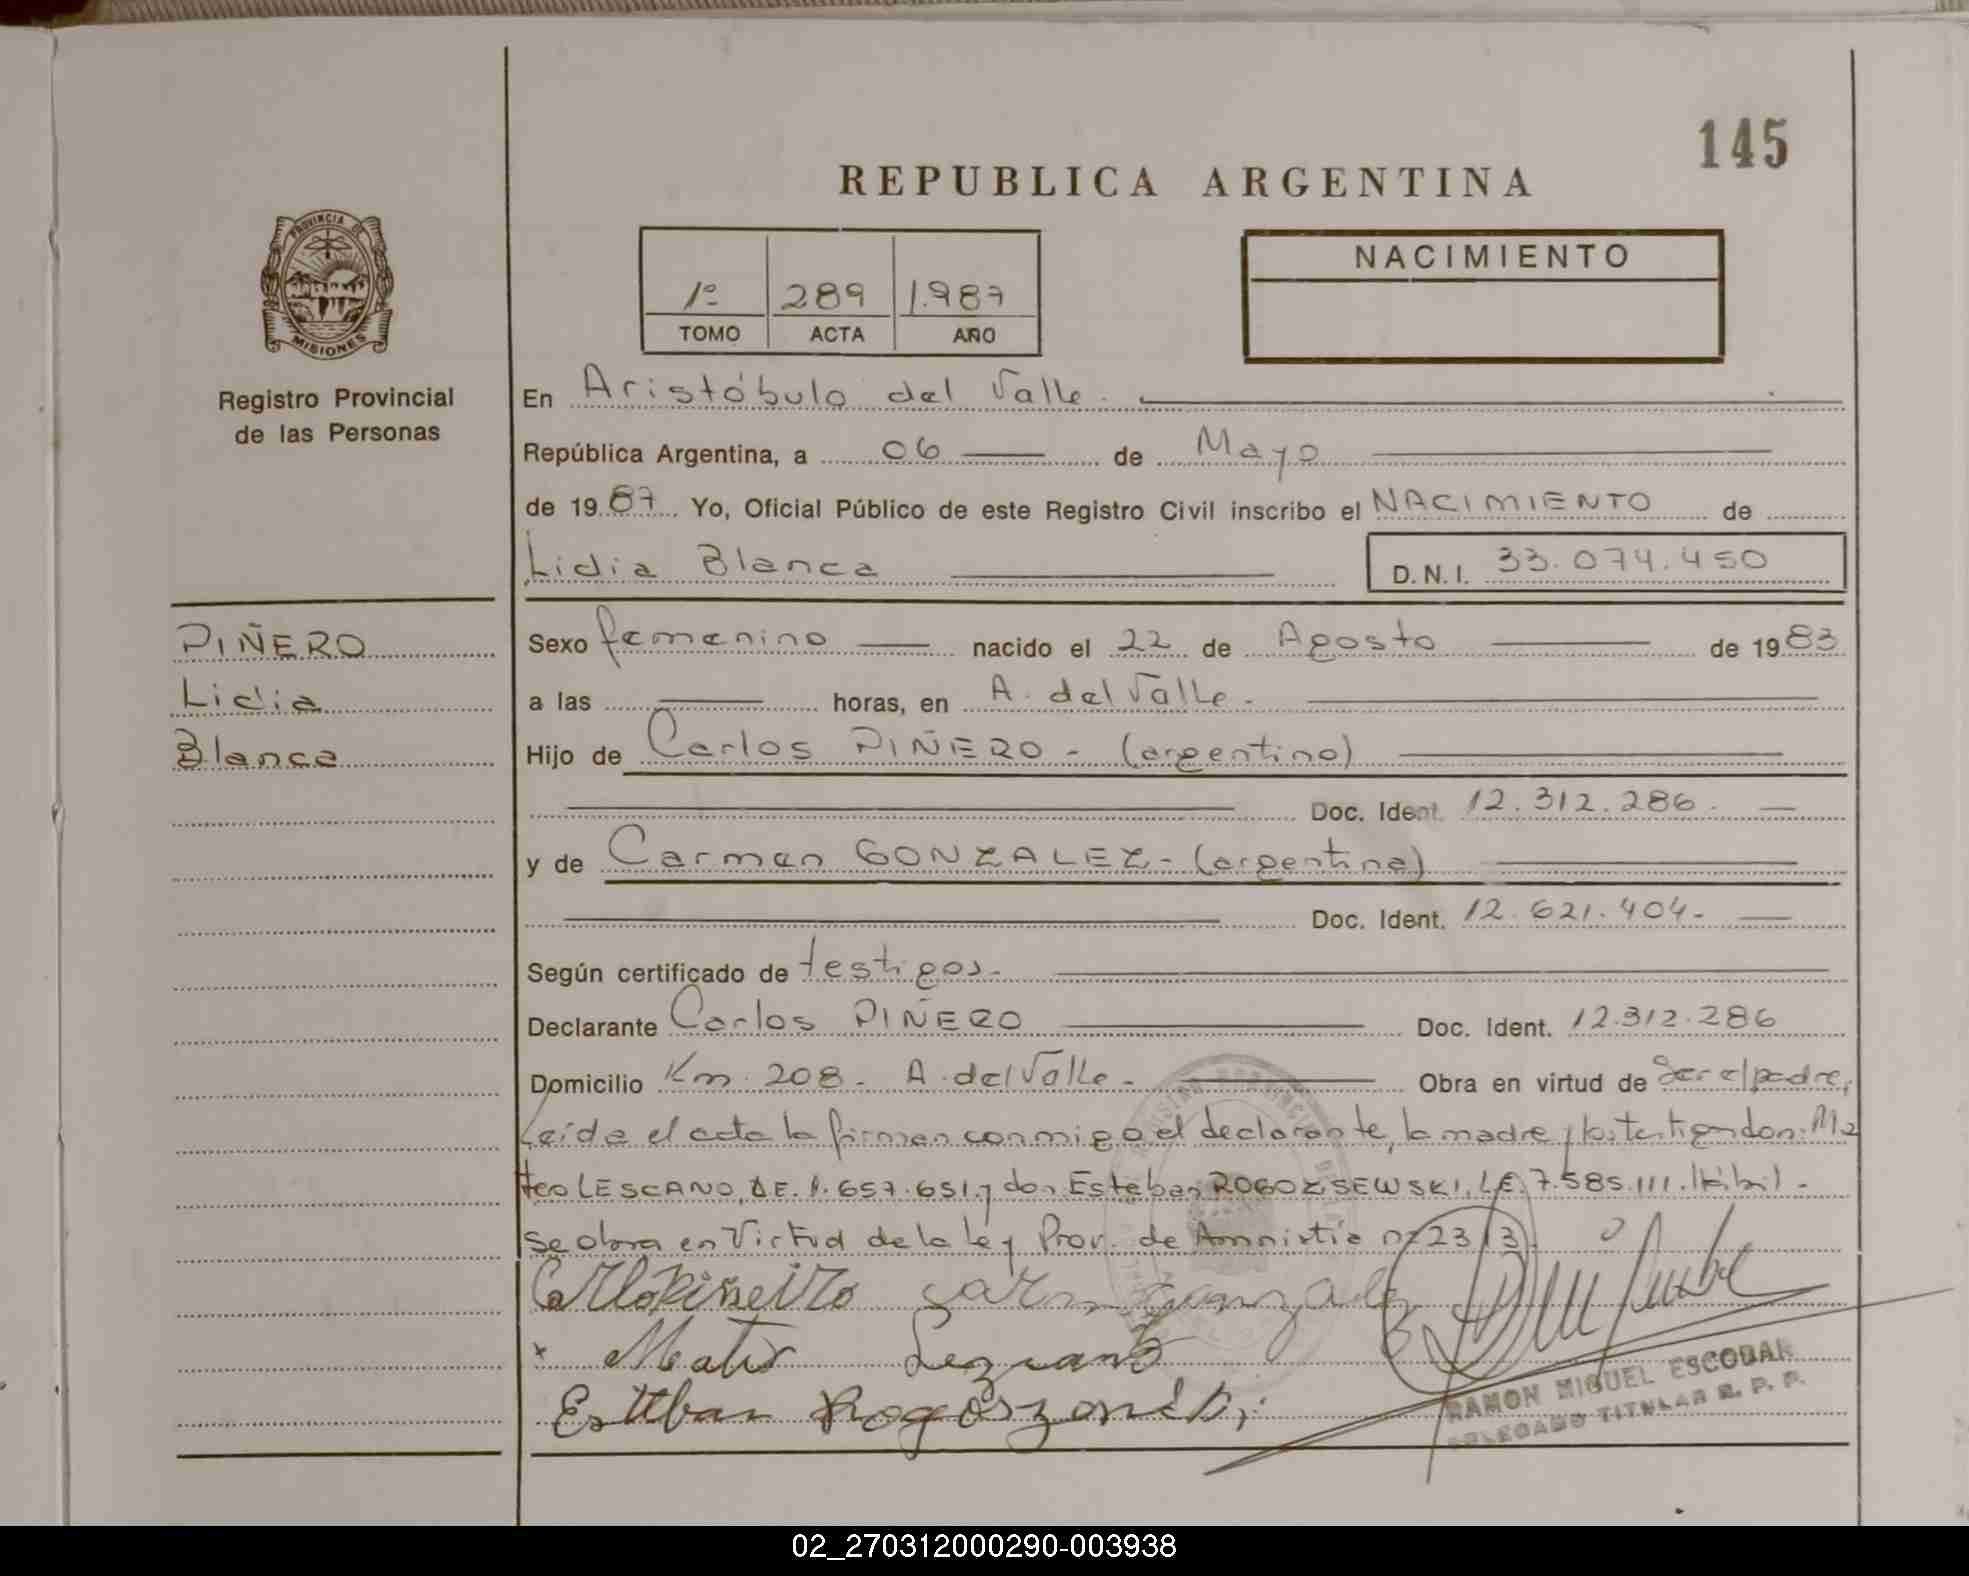 145
REPUBLICA ARGENTINA
PROVINCIA DE
MISIONES
Registro Provincial
de las Personas
1º 289 1.987
TOMO ACTA AÑO
NACIMIENTO
En Aristóbulo del Valle.
República Argentina, a 06 de Mayo
de 1987 Yo, Oficial Público de este Registro Civil inscribo el NACIMIENTO de
Lidia Blanca D.N.I. 33.074.450
PIÑERO
Lidia
Blanca
Sexo femenino nacido el 22 de Agosto de 1983
a las horas, en A. del Valle.
Hijo de Carlos PIÑERO - (argentino)
Doc. Ident. 12.312.286.
y de Carmen GONZALEZ - (argentina)
Doc. Ident. 12.621.404-
Según certificado de testigos.
Declarante Carlos PIÑERO Doc. Ident. 12.312.286
Domicilio Km. 208 - A. del Valle - Obra en virtud de ser el padre,
Leída el acta la firman conmigo el declarante, la madre y los testigos don: Ma
teo LESCANO, 1.657.651 y don Esteban ROGOZISEWSKI, L.E. 7.585.111.
Se obra en Virtud de la ley Prov. de Amnistía nº 2313.
Lezcano
Esteban
RAMON MIGUEL ESCOBAR
DELEGADO TITULAR R. P. P.
02_270312000290-003938